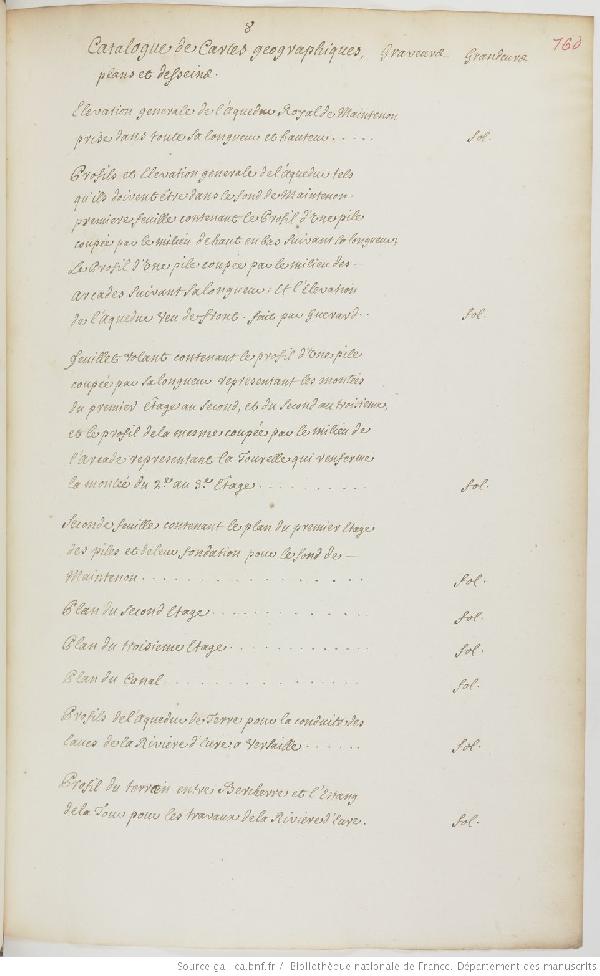 8
760
Catalogue de Cartes geographiques, Graveurs Grandeurs
plans et desseins.
Elevation generale de l'aqueduc Royal de Maintenon
prise dans toute sa longueur et hauteur ..... fol.
Profils et Elevation generale de l'aqueduc tels
qu'ils doivent être dans le fond de Maintenon.
premiere feuille contenant le Profil d'Une pile
coupée par le milieu de haut en bas suivant sa longueur;
Le Profil d'Une pile coupée par le milieu des
arcades suivant sa longueur; Et l'Elevation
de l'aqueduc Veu de front. fait par Guerard .. fol.
feuillet Volant contenant le profil d'Une pile
coupée par sa longueur representant les montées
du premier Etage au second, et du second au troisieme,
et le profil de la mesme coupée par le milieu de
l'arcade representant la Tourelle qui renferme
la montée du 2.e au 3.e Etage .......... fol.
Seconde feuille contenant le plan du premier Etage
des piles et de leur fondation pour le fond de
Maintenon ............... fol.
Plan du second Etage ........... fol.
Plan du troisieme Etage .......... fol.
Plan du Canal .............. fol.
Profils de l'aqueduc de Terre pour la conduite des
Eaues de la Riviere d'Eure a Versaille ...... fol.
Profil du terrein entre Bercherre et l'Etang
de la Tour pour les travaux de la Riviere d'Eure. fol.
Source gallica.bnf.fr / Bibliothèque nationale de France. Département des manuscrits